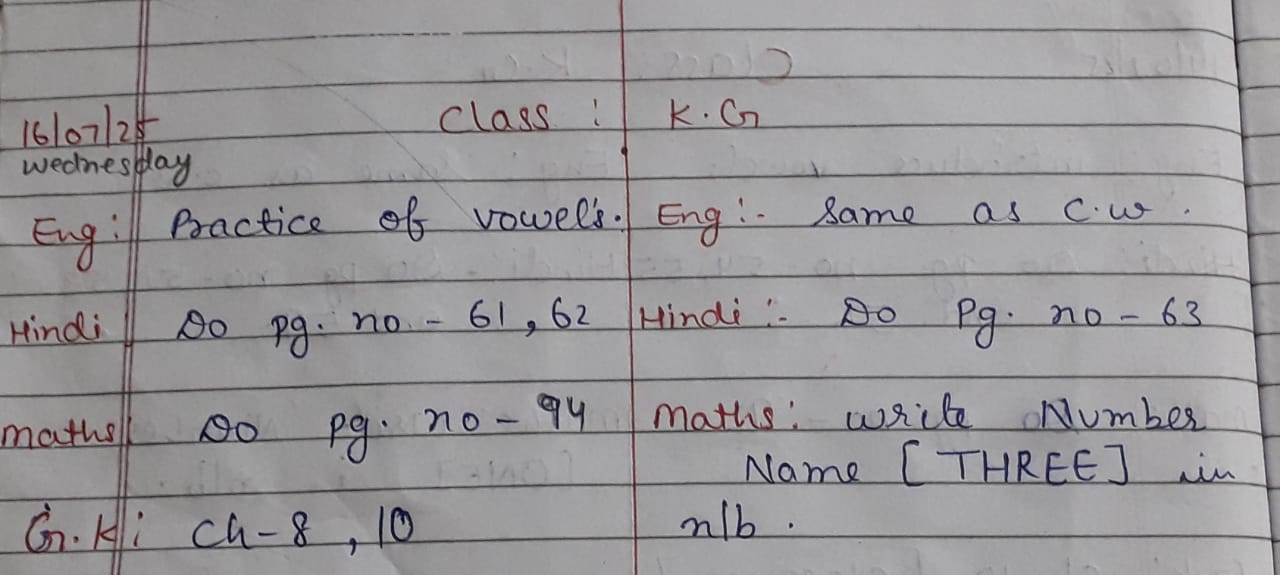 Class : K.G
16/07/25
Wednesday
Eng: Practice of vowel's.
Hindi Do pg. no. - 61, 62
Maths Do pg. no - 94
G.K: Ch - 8, 10
Eng :- Same as C.W.
Hindi :- Do Pg. no - 63
Maths: Write Number
Name [THREE] in
n/b.